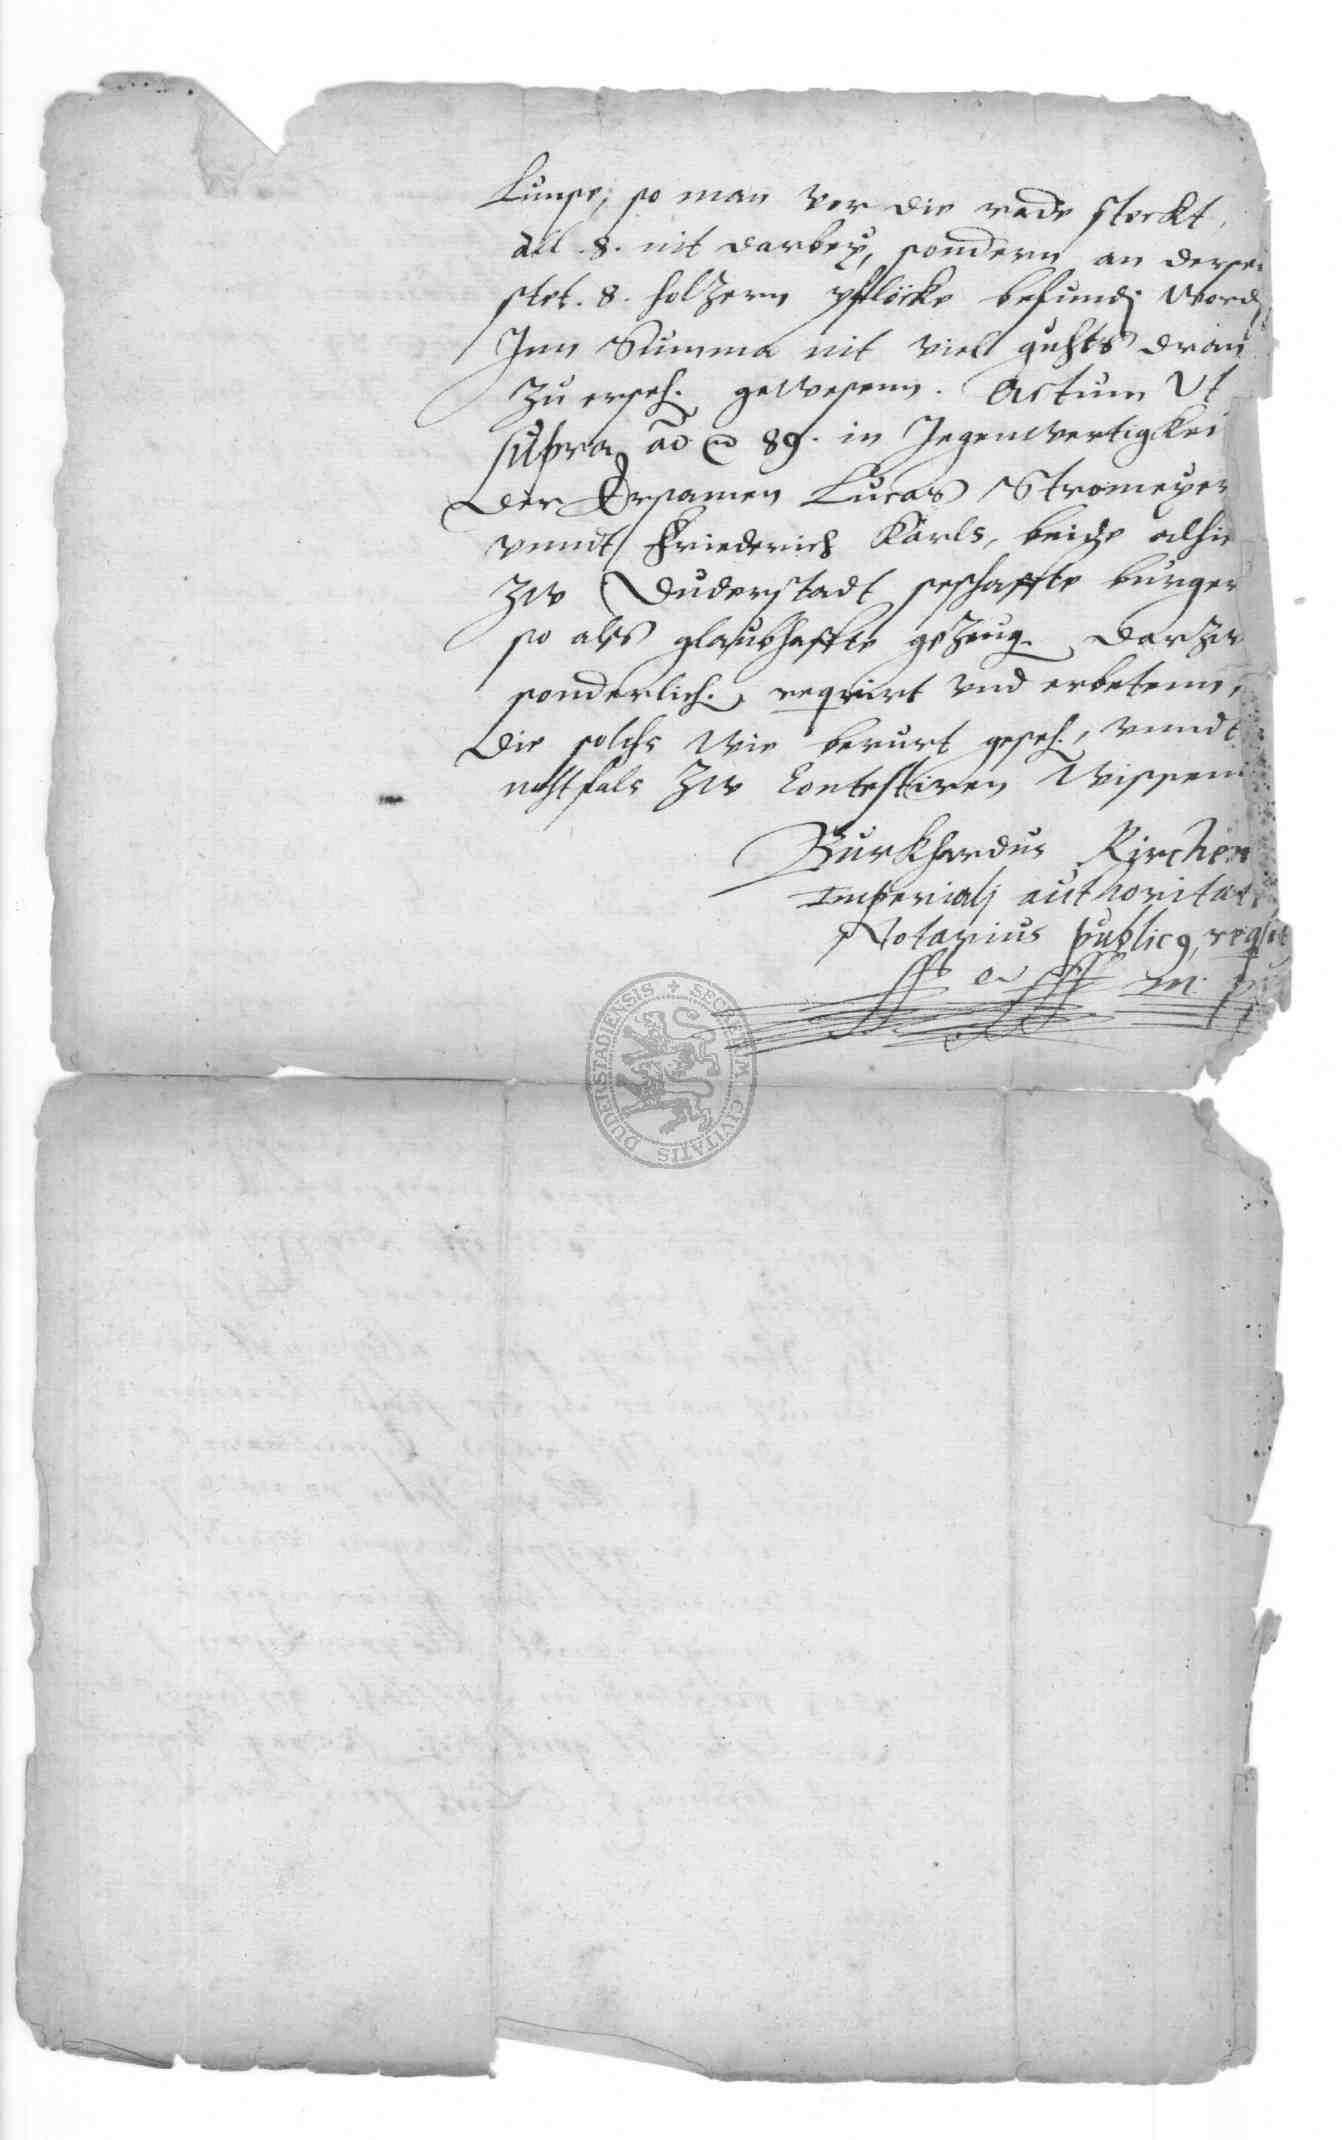 Lunse, so man vor die rade steckt,
all .8. nit darbey, sondern an derse
stet .8. holtzern pflöcke befund word
Inn Summa nit viel guhts dran
zu erseh. gewesenn. Actum Ut
supra, ao 89. in Jegenwertigkei
der Ersamen Lucas Stromeyer
vnndt Friederich Karls, beide alhie
zw Duderstadt seshaffte burger
so als glaubhaffte gezeug. darzw
sonderlich. requirt vnd erbetenn,
die solchs wie berurt geseh., vnndt
nohtfals zw Contestiren wissenn
Burkhardus Kirchen
Imperialj authoritat
Notarius publicq, reqsit
m. p.
SECRETUM CIVITATIS DUDERSTADIENSIS